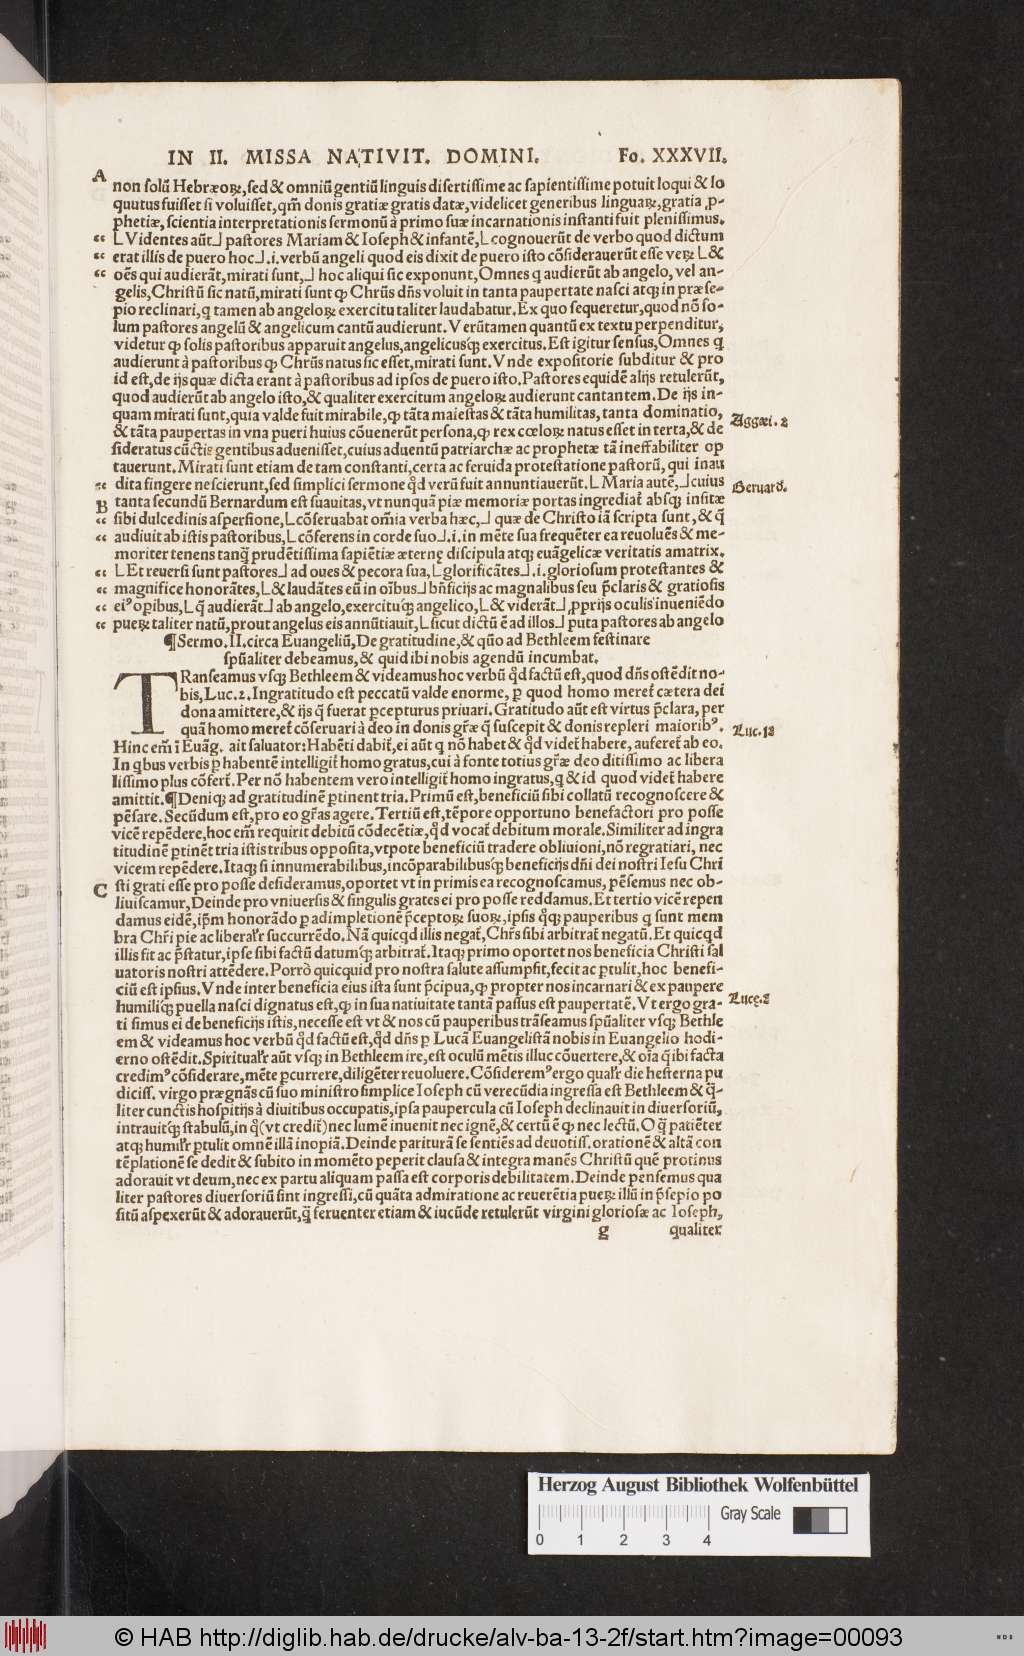 IN II. MISSA NATIVIT. DOMINI. Fo. XXXVII.
A
non solũ Hebræoꝝ, sed & omniũ gentiũ linguis disertissime ac sapientissime potuit loqui & lo
quutus fuisset si voluisset, qm̃ donis gratiæ gratis datæ, videlicet generibus linguaꝝ, gratia ꝓ-
phetiæ, scientia interpretationis sermonũ à primo suæ incarnationis instanti fuit plenissimus.
“ ⌊Videntes aũt⌋ pastores Mariam & Ioseph & infantẽ, ⌊cognouerũt de verbo quod dictum
“ erat illis de puero hoc⌋.i. verbũ angeli quod eis dixit de puero isto cõsiderauerũt esse veꝝ ⌊&
“ oẽs qui audierãt, mirati sunt,⌋ hoc aliqui sic exponunt, Omnes q audierũt ab angelo, vel an-
gelis, Christũ sic natũ, mirati sunt ꝙ Chrũs dñs voluit in tanta paupertate nasci atqꝫ in præse-
pio reclinari, q tamen ab angeloꝝ exercitu taliter laudabatur. Ex quo sequeretur, quod nõ so-
lum pastores angelũ & angelicum cantũ audierunt. Verũtamen quantũ ex textu perpenditur,
videtur ꝙ solis pastoribus apparuit angelus, angelicusqꝫ exercitus. Est igitur sensus, Omnes q
audierunt à pastoribus ꝙ Chrũs natus sic esset, mirati sunt. Vnde expositorie subditur & pro
id est, de ijs quæ dicta erant à pastoribus ad ipsos de puero isto. Pastores equidẽ alijs retulerũt,
quod audierũt ab angelo isto, & qualiter exercitum angeloꝝ audierunt cantantem. De ijs in-
quam mirati sunt, quia valde fuit mirabile, ꝙ tãta maiestas & tãta humilitas, tanta dominatio,
Aggæi. 2
& tãta paupertas in vna pueri huius cõuenerũt persona, ꝙ rex cœloꝝ natus esset in terra, & de
sideratus cũctis gentibus aduenisset, cuius aduentũ patriarchæ ac prophetæ tã ineffabiliter op
tauerunt. Mirati sunt etiam de tam constanti, certa ac feruida protestatione pastorũ, qui inau
“ dita fingere nescierunt, sed simplici sermone qd̃ verũ fuit annuntiauerũt. ⌊Maria autẽ,⌋ cuius
Bernard.
B tanta secundũ Bernardum est suauitas, vt nunquã piæ memoriæ portas ingrediat᷑ absqꝫ insitæ
“ sibi dulcedinis aspersione, ⌊cõseruabat om̃ia verba hæc,⌋ quæ de Christo iã scripta sunt, & q̃
“ audiuit ab istis pastoribus, ⌊cõferens in corde suo⌋.i. in mẽte sua frequẽter ea reuoluẽs & me-
moriter tenens tanq̃ prudẽtissima sapiẽtiæ æternę discipula atqꝫ euãgelicæ veritatis amatrix.
“ ⌊Et reuersi sunt pastores⌋ ad oues & pecora sua, ⌊glorificãtes⌋.i. gloriosum protestantes &
“ magnifice honorãtes, ⌊& laudãtes eũ in oĩbus⌋ bñficijs ac magnalibus seu p̃claris & gratiosis
“ ei⁹ oꝑibus, ⌊q̃ audierãt⌋ ab angelo, exercituqꝫ angelico, ⌊& viderãt⌋ ꝓprijs oculis inueniẽdo
“ pueꝝ taliter natũ, prout angelus eis annũtiauit, ⌊sicut dictũ ẽ ad illos⌋ puta pastores ab angelo
¶Sermo. II. circa Euangeliũ, De gratitudine, & quõ ad Bethleem festinare
spũaliter debeamus, & quid ibi nobis agendũ incumbat.
TRanseamus vsqꝫ Bethleem & videamus hoc verbũ qd̃ factũ est, quod dñs ostẽdit no-
bis, Luc. 2. Ingratitudo est peccatũ valde enorme, ꝑ quod homo meret᷑ cætera dei
dona amittere, & ijs q̃ fuerat ꝑcepturus priuari. Gratitudo aũt est virtus p̃clara, per
quã homo meret᷑ cõseruari à deo in donis gr̃æ q̃ suscepit & donis repleri maiorib⁹.
Luc. 18
Hinc em̃ ĩ Euãg. ait saluator: Habẽti dabit᷑, ei aũt q nõ habet & qd̃ videt᷑ habere, auferet᷑ ab eo.
In qbus verbis ꝑ habentẽ intelligit᷑ homo gratus, cui à fonte totius gr̃æ deo ditissimo ac libera
lissimo plus cõfert᷑. Per nõ habentem vero intelligit᷑ homo ingratus, q & id quod videt᷑ habere
amittit. ¶Deniqꝫ ad gratitudinẽ ꝑtinent tria. Primũ est, beneficiũ sibi collatũ recognoscere &
pẽsare. Secũdum est, pro eo gr̃as agere. Tertiũ est, tẽpore opportuno benefactori pro posse
vicẽ repẽdere, hoc em̃ requirit debitũ cõdecẽtiæ, qd̃ vocat᷑ debitum morale. Similiter ad ingra
titudinẽ ꝑtinẽt tria istis tribus opposita, vtpote beneficiũ tradere obliuioni, nõ regratiari, nec
vicem repẽdere. Itaqꝫ si innumerabilibus, incõparabilibusqꝫ beneficijs dñi dei nostri Iesu Chri
C sti grati esse pro posse desideramus, oportet vt in primis ea recognoscamus, pẽsemus nec ob-
liuiscamur, Deinde pro vniuersis & singulis grates ei pro posse reddamus. Et tertio vicẽ repen
damus eidẽ, ip̃m honorãdo ꝑ adimpletionẽ p̃ceptoꝝ suoꝝ, ipsis qꝫ pauperibus q sunt mem
bra Chr̃i pie ac liberal'r succurrẽdo. Nã quicqd illis negat᷑, Chr̃s sibi arbitrat᷑ negatũ. Et quicqd
illis fit ac p̃statur, ipse sibi factũ datumqꝫ arbitrat᷑. Itaqꝫ primo oportet nos beneficia Christi sal
uatoris nostri attẽdere. Porrò quicquid pro nostra salute assumpsit, fecit ac ꝑtulit, hoc benefi-
ciũ est ipsius. Vnde inter beneficia eius ista sunt p̃cipua, ꝙ propter nos incarnari & ex paupere
humiliqꝫ puella nasci dignatus est, ꝙ in sua natiuitate tantã passus est paupertatẽ. Vt ergo gra-
Lucę. 2
ti simus ei de beneficijs istis, necesse est vt & nos cũ pauperibus trãseamus spũaliter vsqꝫ Bethle
em & videamus hoc verbũ qd̃ factũ est, qd̃ dñs ꝑ Lucã Euangelistã nobis in Euangelio hodi-
erno ostẽdit. Spiritual'r aũt vsqꝫ in Bethleem ire, est oculũ mẽtis illuc cõuertere, & oĩa q̃ ibi facta
credim⁹ cõsiderare, mẽte ꝑcurrere, diligẽter reuoluere. Cõsiderem⁹ ergo qual'r die hesterna pu
diciss. virgo prægnãs cũ suo ministro simplice Ioseph cũ verecũdia ingressa est Bethleem & q̃-
liter cunctis hospitijs à diuitibus occupatis, ipsa paupercula cũ Ioseph declinauit in diuersoriũ,
intrauitqꝫ stabulũ, in q̃ (vt credit᷑) nec lumẽ inuenit nec ignẽ, & certũ ẽ ꝙ nec lectũ. O q̃ patiẽter
atqꝫ humil'r ꝑtulit omnẽ illã inopiã. Deinde pariturã se sentiẽs ad deuotiss. orationẽ & altã con
tẽplationẽ se dedit & subito in momẽto peperit clausa & integra manẽs Christũ quẽ protinus
adorauit vt deum, nec ex partu aliquam passa est corporis debilitatem. Deinde pensemus qua
liter pastores diuersoriũ sint ingressi, cũ quãta admiratione ac reuerẽtia pueꝝ illũ in p̃sepio po
sitũ aspexerũt & adorauerũt, q̃ feruenter etiam & iucũde retulerũt virgini gloriosæ ac Ioseph,
g qualiter
Herzog August Bibliothek Wolfenbüttel
Gray Scale
0 1 2 3 4
© HAB http://diglib.hab.de/drucke/alv-ba-13-2f/start.htm?image=00093